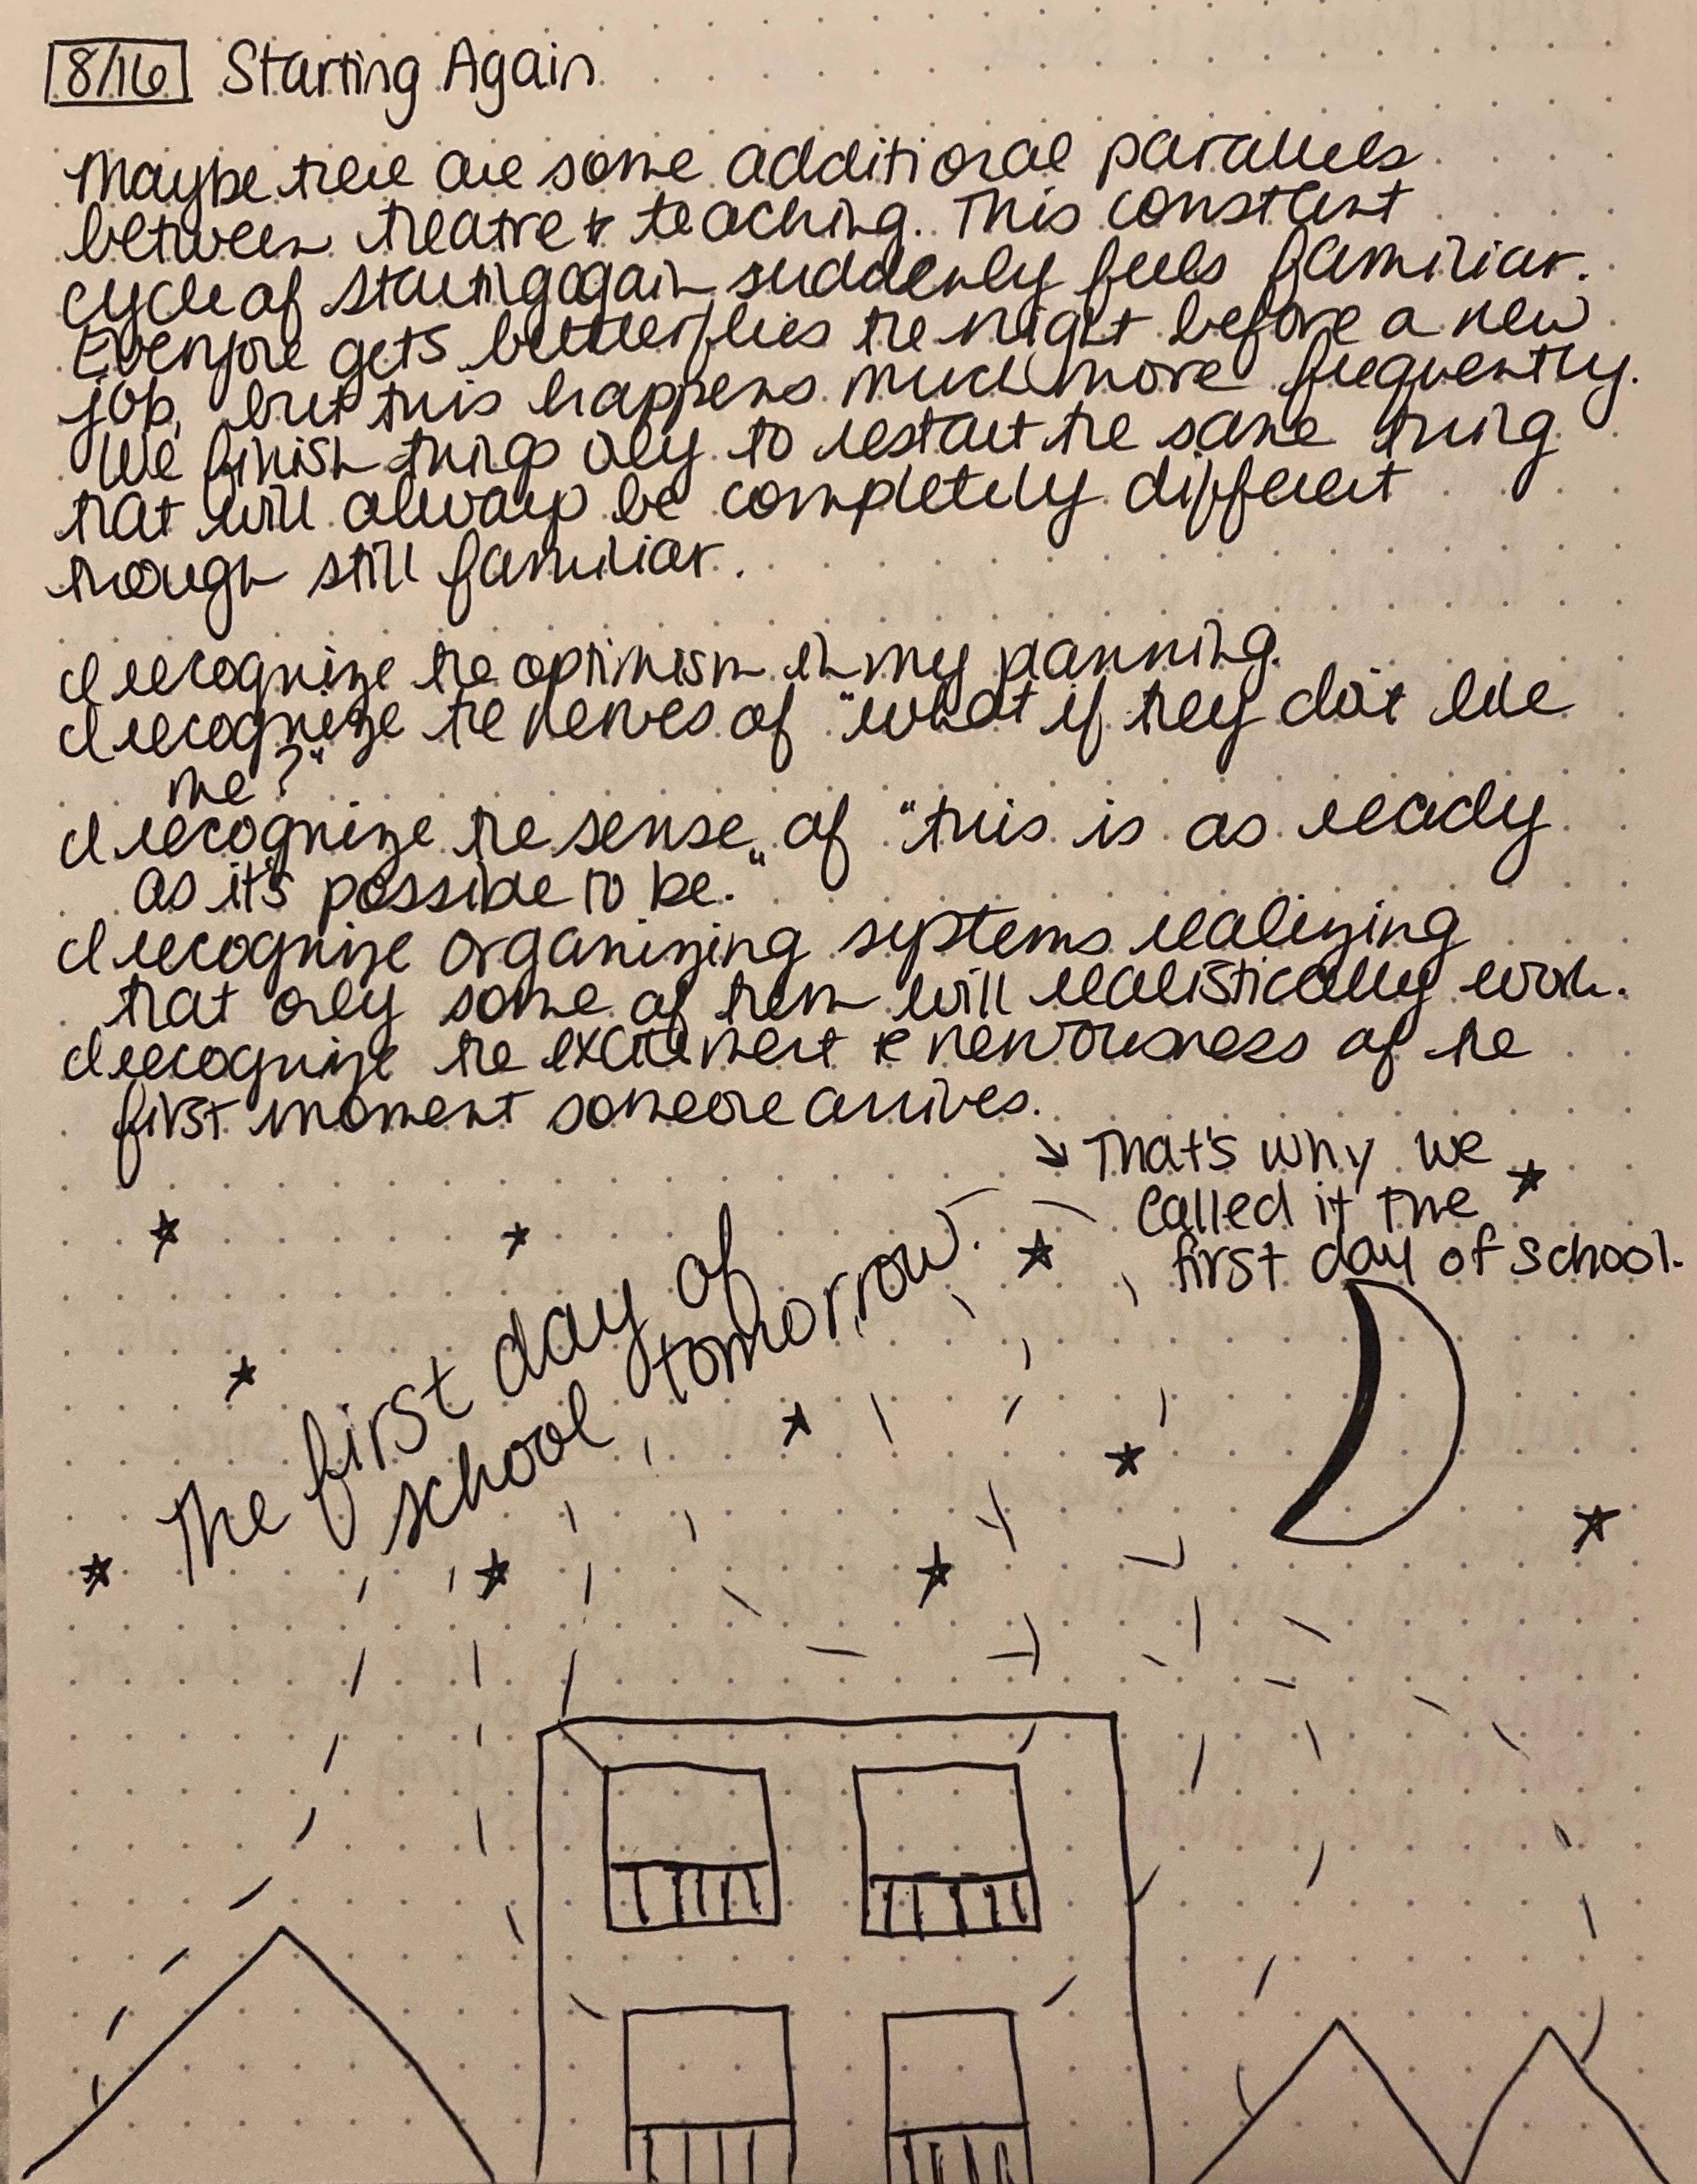 8/16 Starting Again
Maybe there are some additional parallels
between theatre & teaching. This constant
cycle of starting again suddenly feels familiar.
Everyone gets butterflies the night before a new
job, but this happens much more frequently.
We finish things only to restart the same thing
that will always be completely different
though still familiar.
I recognize the optimism in my planning.
I recognize the nerves of "what if they don't like
me?"
I recognize the sense of "this is as ready
as it's possible to be."
I recognize organizing systems realizing
that only some of them will realistically work.
I recognize the excitement & nervousness of the
first moment someone arrives.
↘ That's why we
called it the
first day of school.
The first day of
school tomorrow.